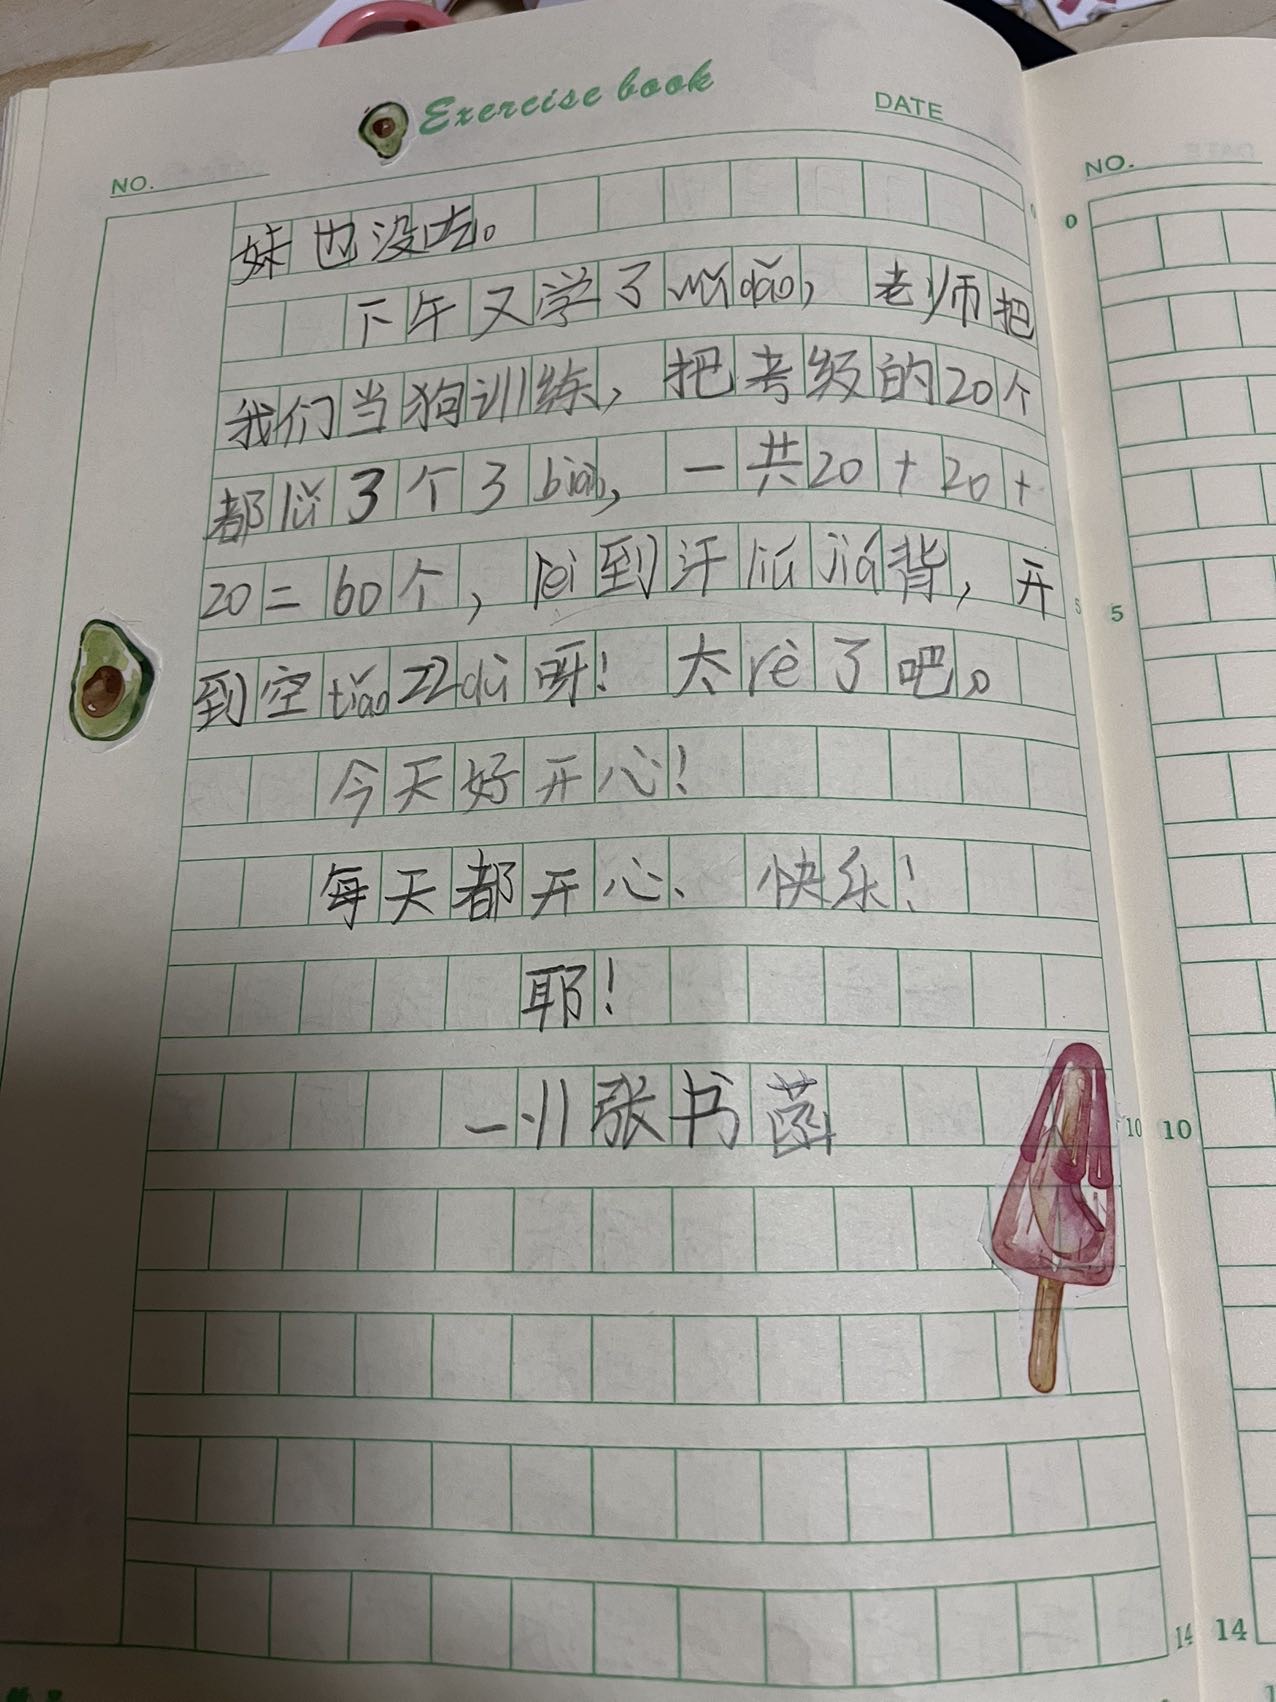 Exercise book
DATE
NO.
NO.
妹也没去。
下午又学了wǔ dǎo，老师把
我们当狗训练，把考级的20个
都liǔ3个3biàn，一共20+20+
20=60个，lèi到汗liú jiá背，开
到空tiáo22dù呀！太rè了吧。
今天好开心！
每天都开心、快乐！
耶！
张书菡
0
5
5
10
10
14
14